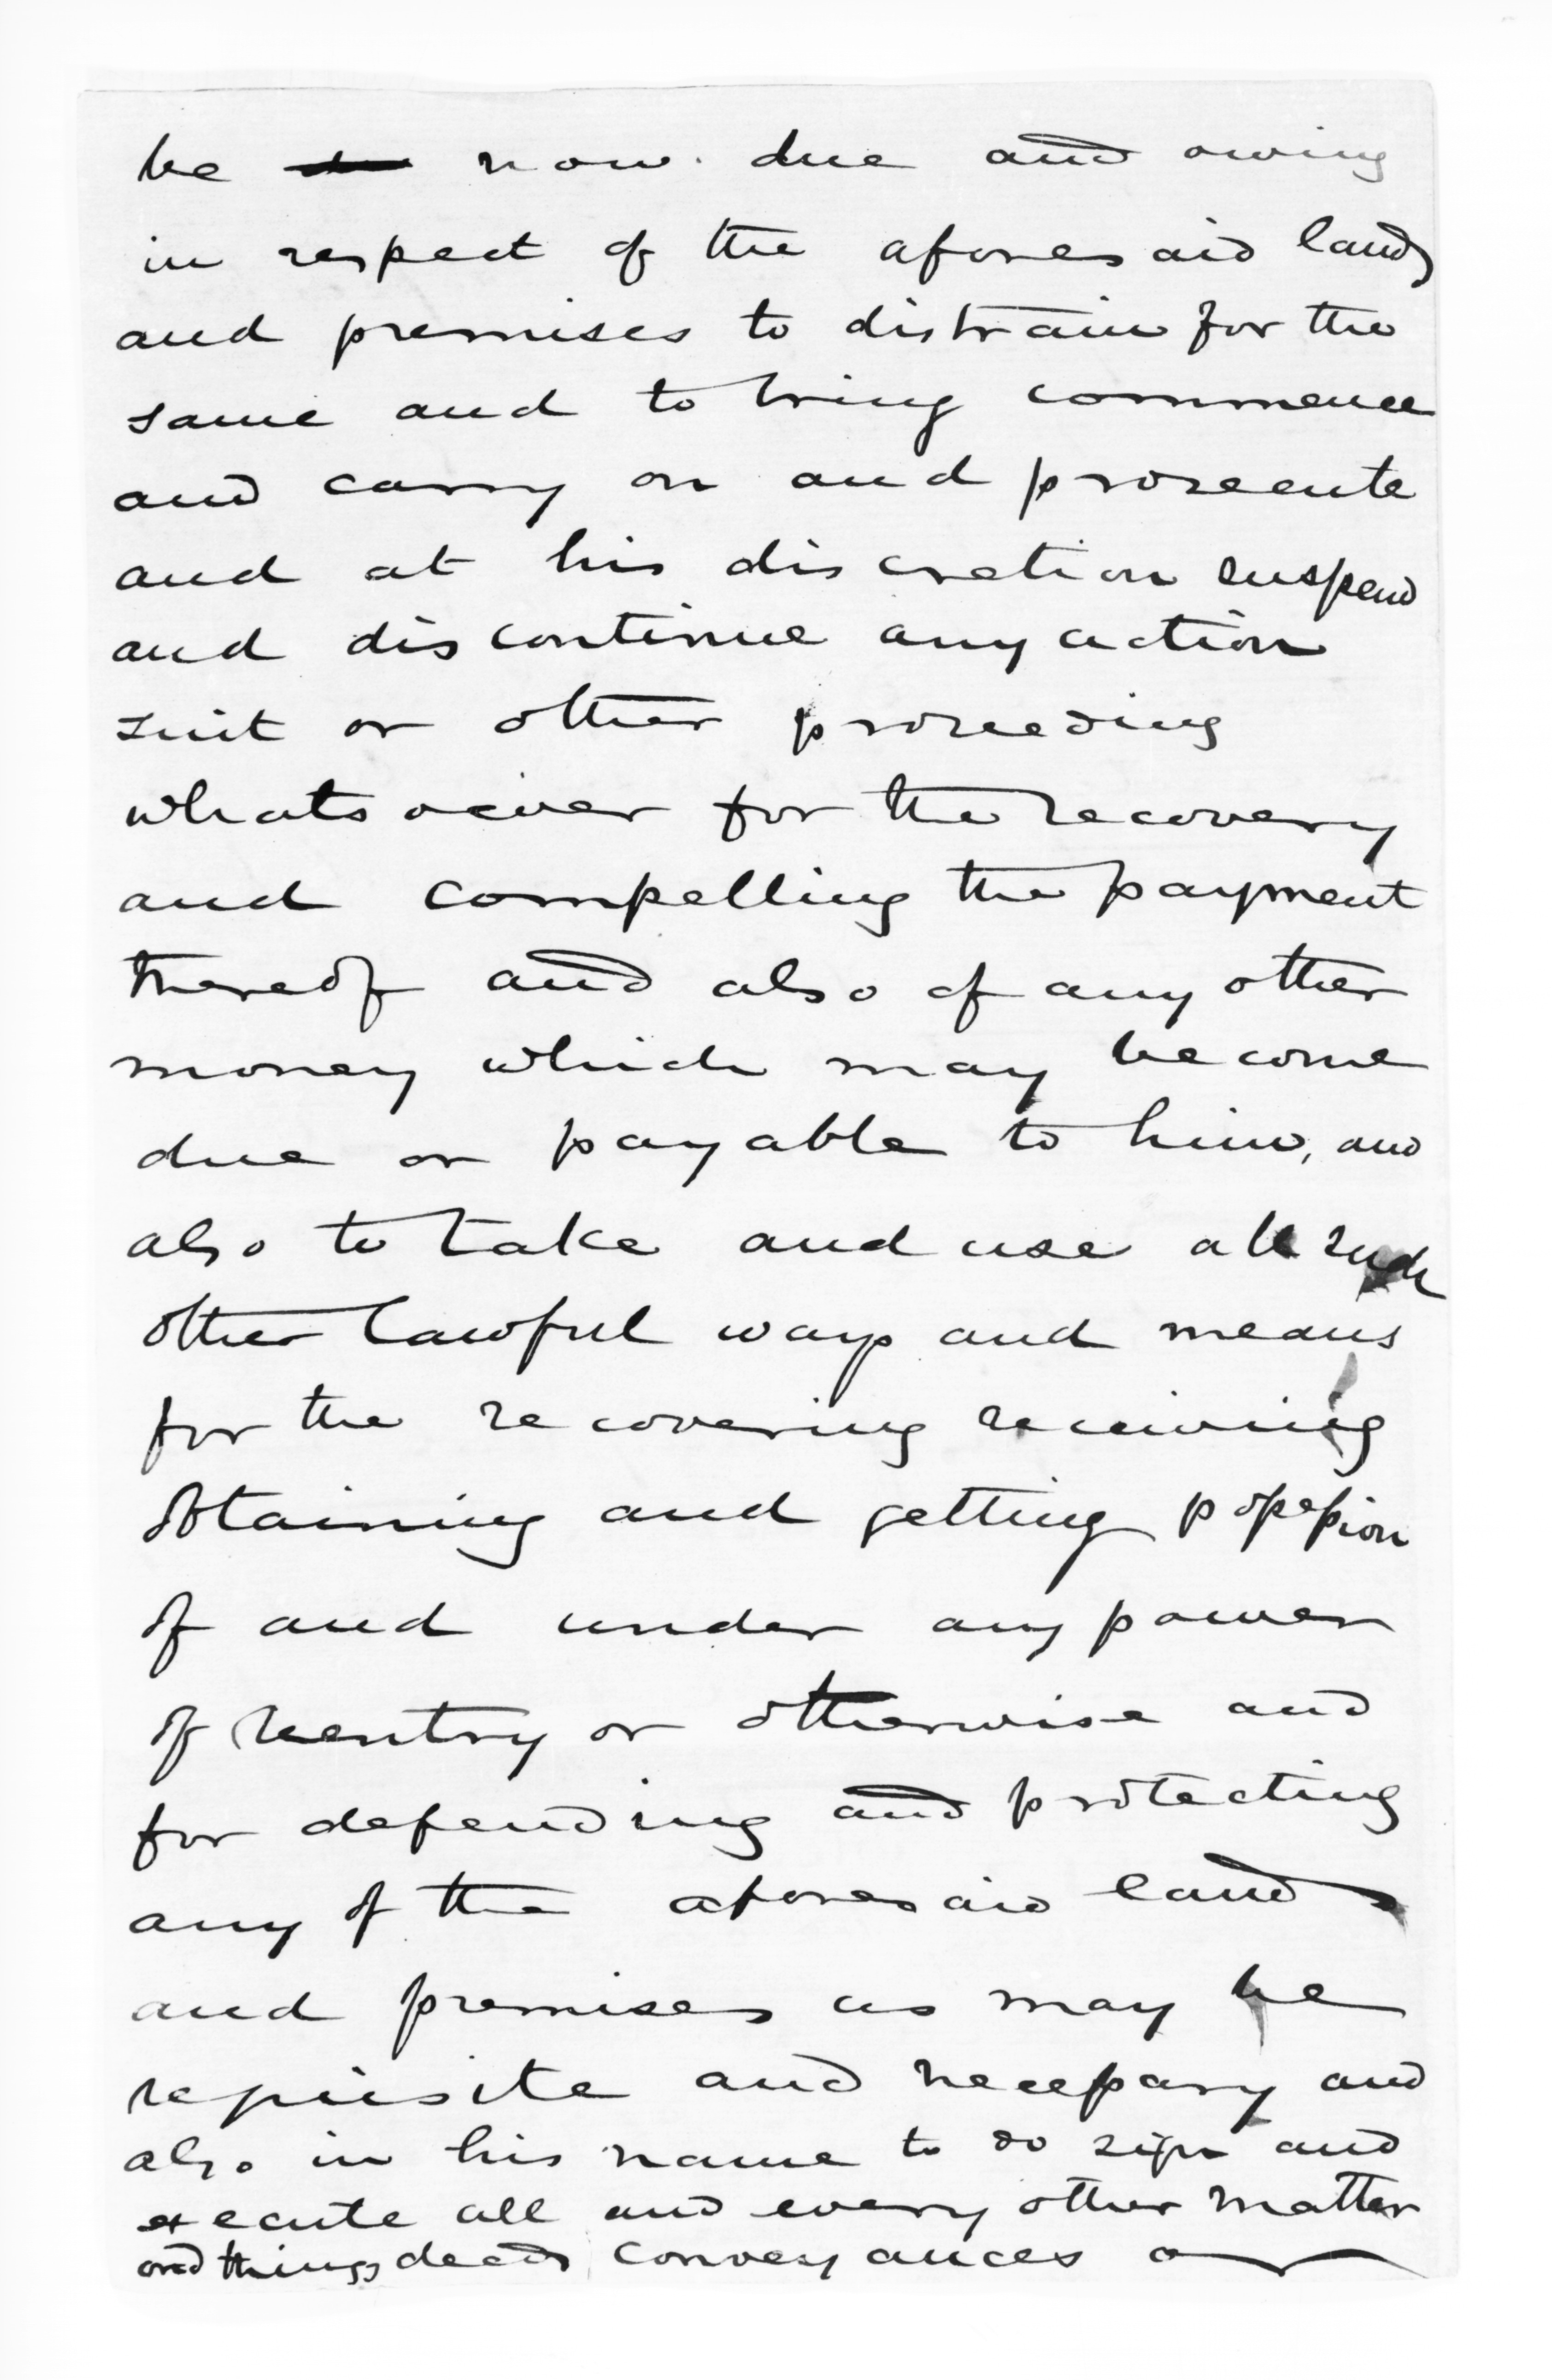 be now due and owing
in respect of the aforesaid lands
and premises to distrain for the
same and to bring commence
and carry on and prosecute
and at his discretion suspend
and discontinue any action
suit or other proceeding
whatsoever for the recovery
and compelling the payment
thereof and also of any other
money which may become
due or payable to him, and
also to take and use all such
other lawful ways and means
for the recovering receiving
obtaining and getting possession
of and under any power
of reentry or otherwise and
for defending and protecting
any of the aforesaid lands
and premises as may be
requisite and necessary and
also in his name to do sign and
execute all and every other matter
and things deeds conveyances or